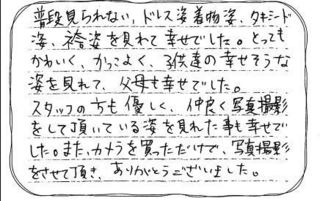 普段見られない、ドレス姿着物姿、タキシード
姿、袴姿を見れて幸せでした。とっても
かわいく、かっこよく、子供達の幸せそうな
姿を見れて、父母も幸せでした。
スタッフの方も優しく、仲良く写真撮影
をして頂いている姿を見れた事も幸せで
した。また、カメラを買っただけで、写真撮影
をさせて頂き、ありがとうございました。